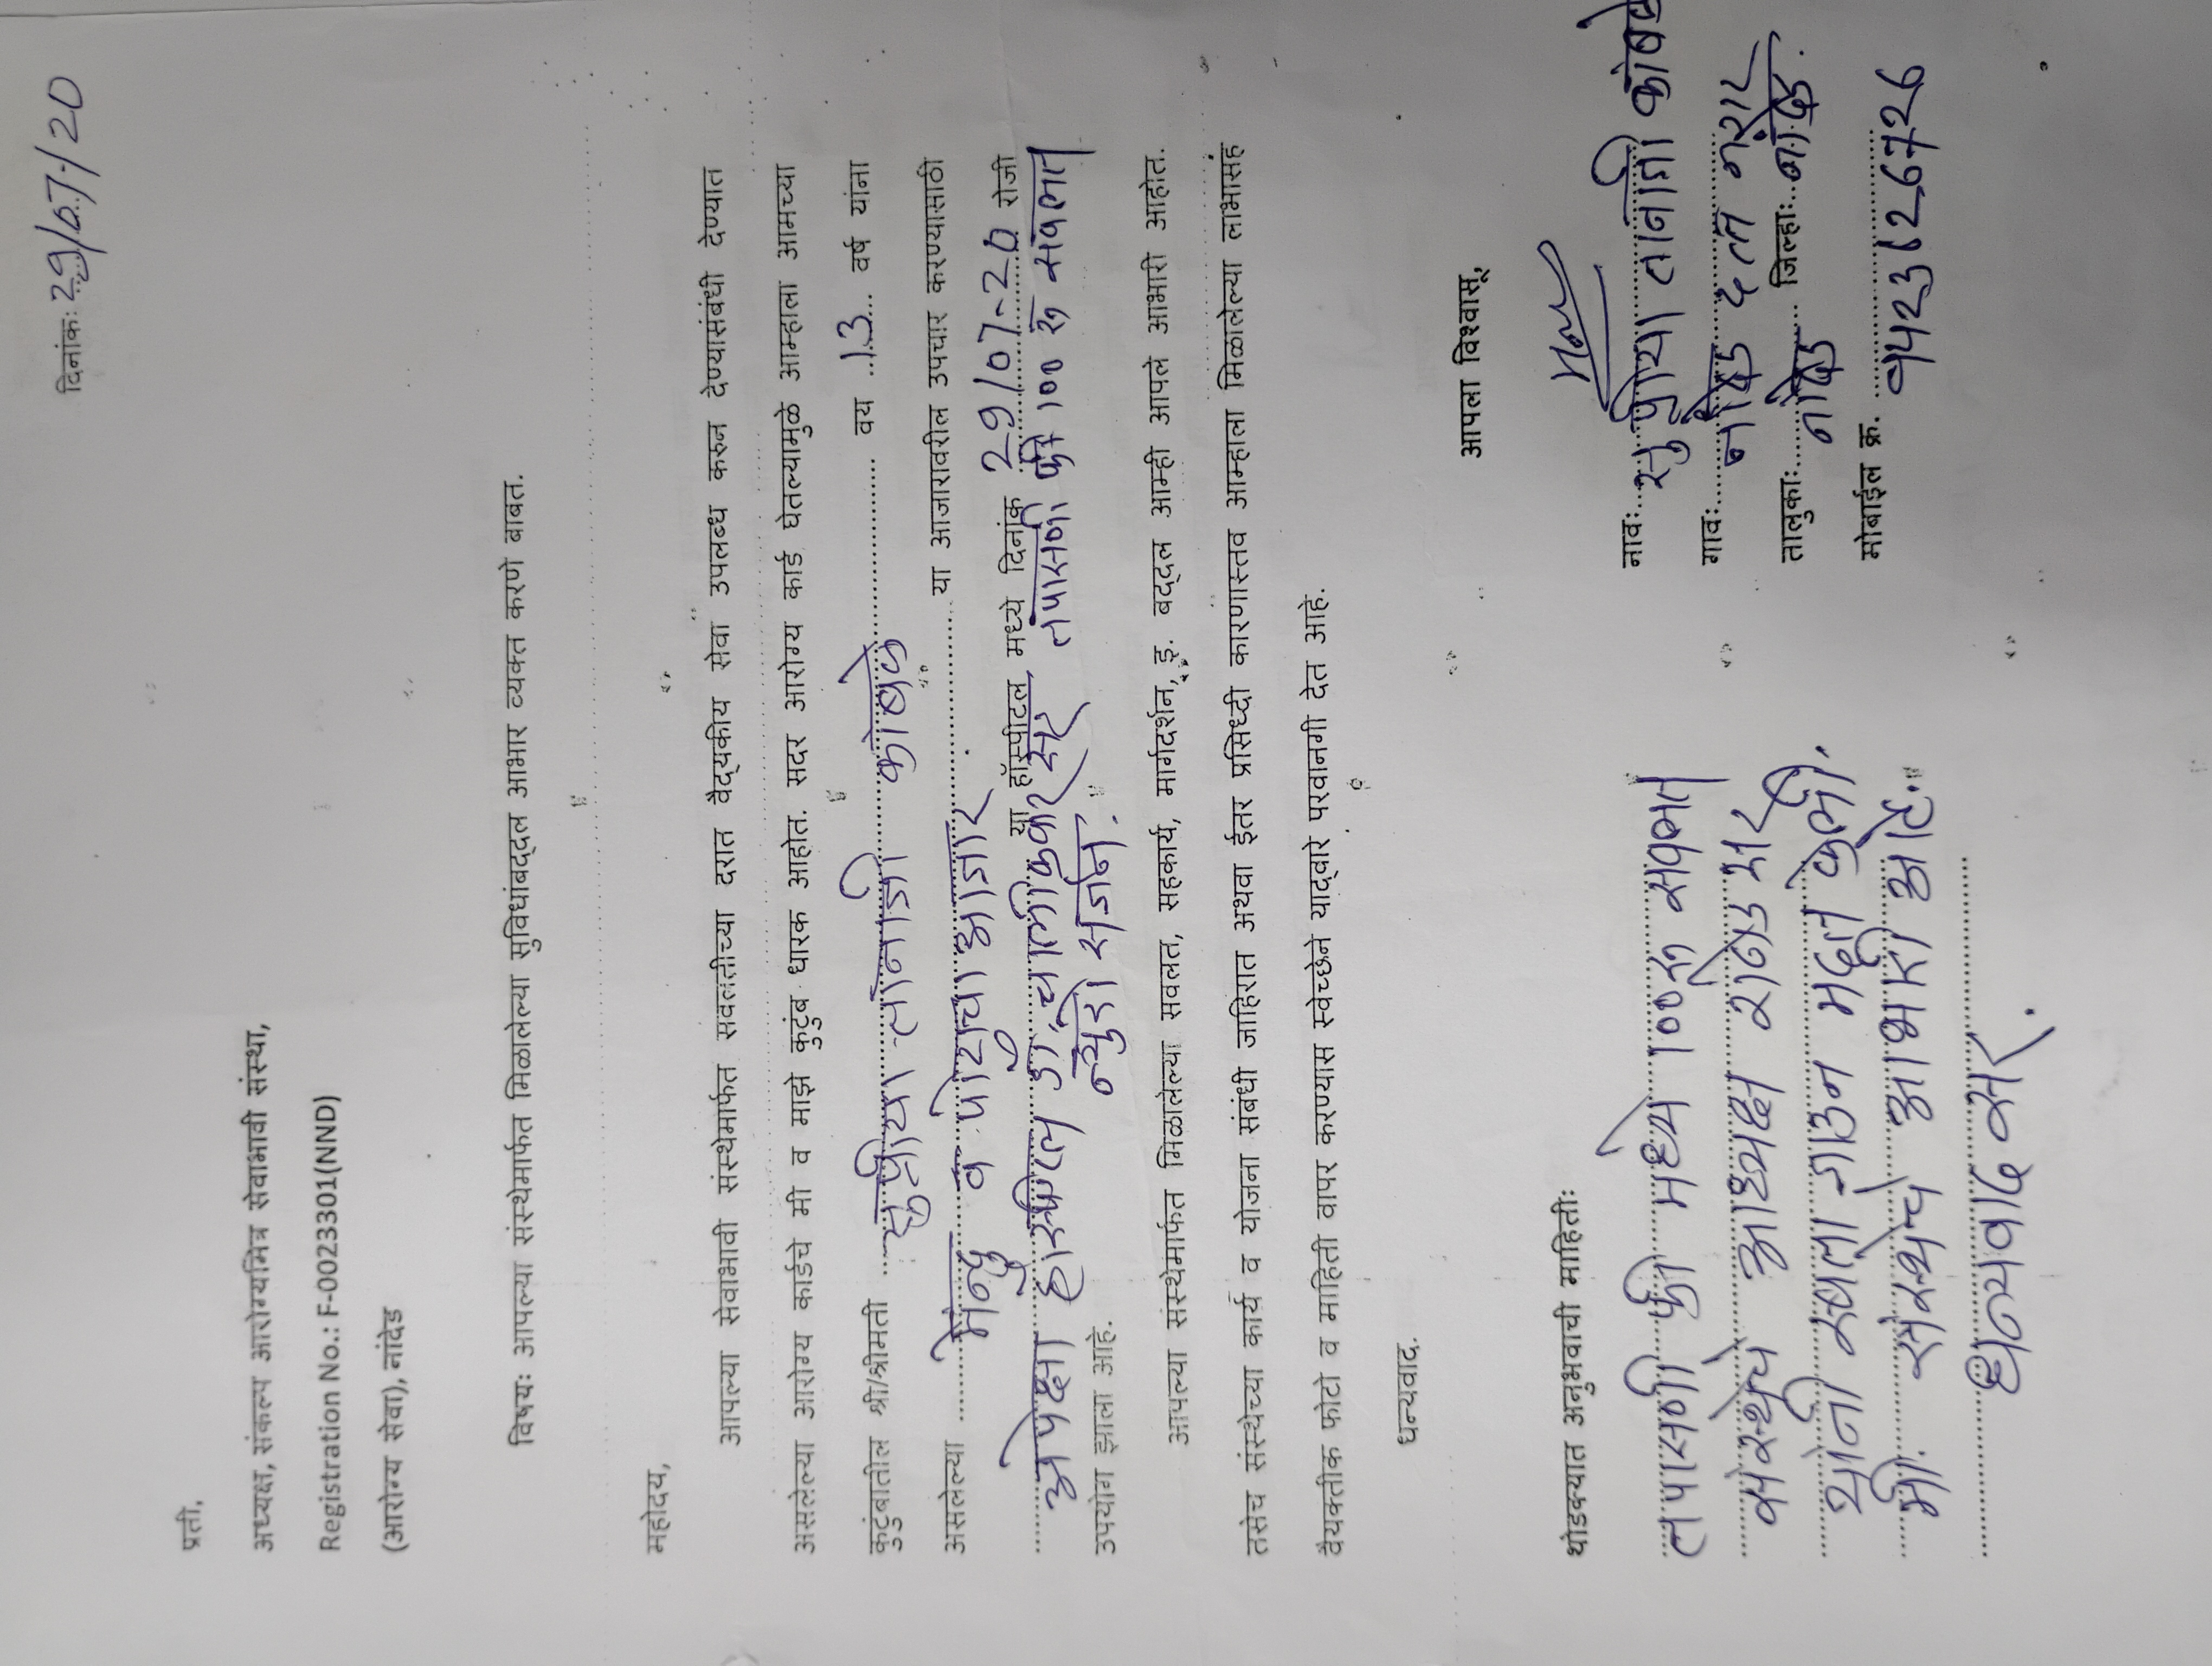 दिनांकः 29/07/20
प्रती,
अध्यक्ष, संकल्प आरोग्यमित्र सेवाभावी संस्था,
Registration No.: F-0023301(NND)
(आरोग्य सेवा), नांदेड
विषयः आपल्या संस्थेमार्फत मिळालेल्या सुविधांबद्दल आभार व्यक्त करणे बाबत.
महोदय,
आपल्या सेवाभावी संस्थेमार्फत सवलतीच्या दरात वैद्यकीय सेवा उपलब्ध करुन देण्यासंबंधी देण्यात
असलेल्या आरोग्य कार्डचे मी व माझे कुटुंब धारक आहोत. सदर आरोग्य कार्ड घेतल्यामुळे आम्हाला आमच्या
कुटुंबातील श्री/श्रीमती सुप्रीया तानाजी कांबळे वय 13 वर्ष यांना
असलेल्या मेन्दु व पोटाचा आजार या आजारावरील उपचार करण्यासाठी
अपेक्षा हॉस्पीटल डॉ. या हॉस्पीटल मध्ये दिनांक 29/07-20 रोजी
उपयोग झाला आहे. न्युरो सर्जन. तपासणी फी 100 रु सवलत
आपल्या संस्थेमार्फत मिळालेल्या सवलत, सहकार्य, मार्गदर्शन, इ. बद्दल आम्ही आपले आभारी आहोत.
तसेच संस्थेच्या कार्य व योजना संबंधी जाहिरात अथवा ईतर प्रसिध्दी कारणास्तव आम्हाला मिळालेल्या लाभासह
वैयक्तीक फोटो व माहिती वापर करण्यास स्वेच्छेने याद्वारे परवानगी देत आहे.
धन्यवाद.
आपला विश्वासू,
थोडक्यात अनुभवाची माहितीः
तपासणी फी मध्ये 100 रु सवलत
संस्थेचे अध्यक्ष राठोड सर
यांनी स्वतः जाउन मदत केली.
मी. संस्थेचे आभारी आहे.
धन्यवाद सर.
नावः सुप्रीया तानाजी कांबळे
गावः नांदेड दत्त नगर
तालुकाः नांदेड जिल्हाः नांदेड.
मोबाईल क्र. 9423126726